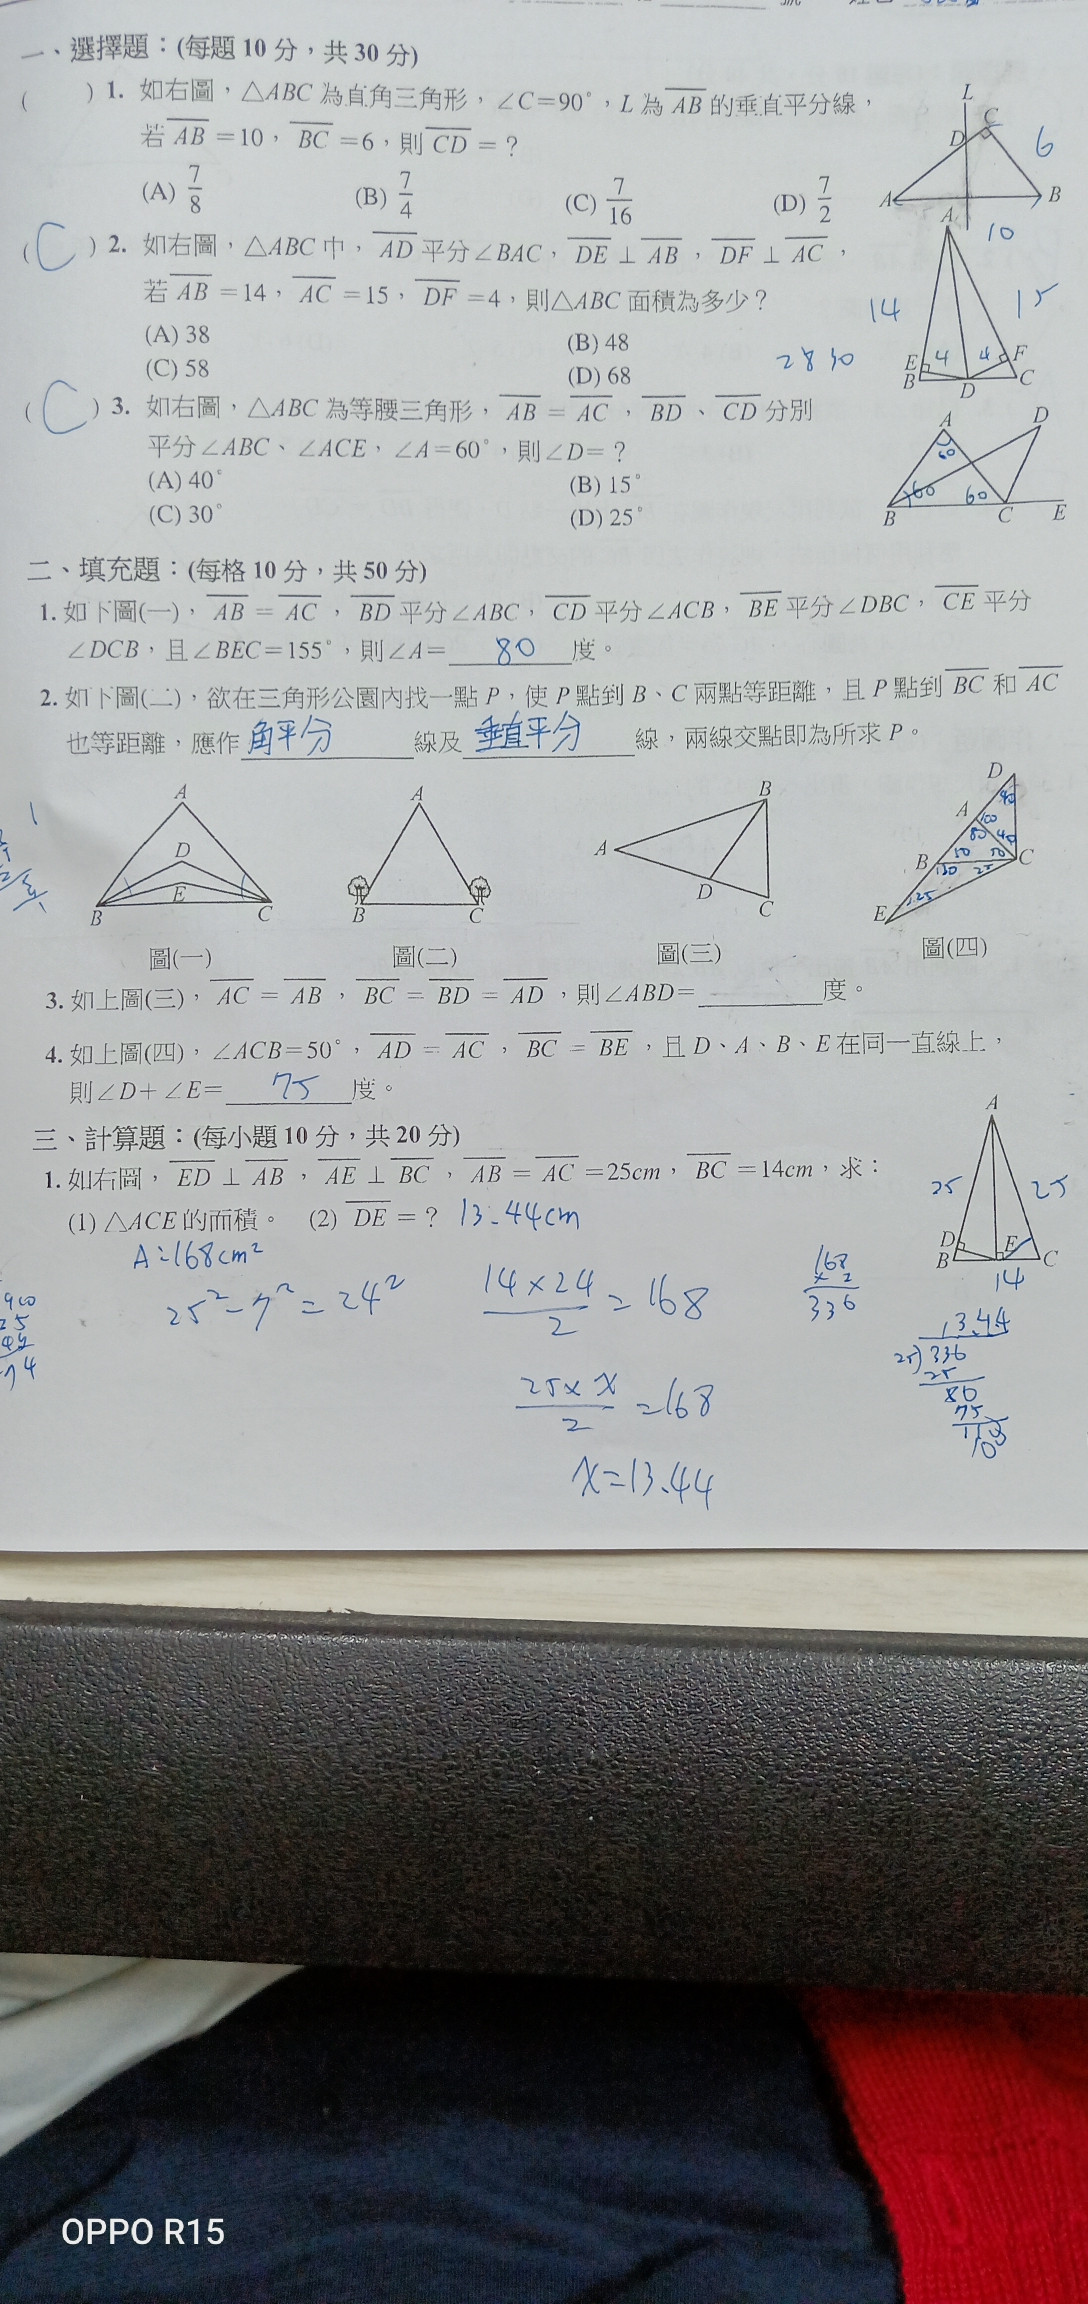 號
一、選擇題：(每題 10 分，共 30 分)
(  ) 1. 如右圖，△ABC 為直角三角形，∠C=90°，L 為 AB 的垂直平分線，
若 AB =10，BC =6，則 CD = ？
(A) 7/8 (B) 7/4 (C) 7/16 (D) 7/2
L
D
C
6
A
B
10
( C ) 2. 如右圖，△ABC 中，AD 平分∠BAC，DE ⊥ AB，DF ⊥ AC，
若 AB =14，AC =15，DF =4，則△ABC 面積為多少？
(A) 38 (B) 48
(C) 58 (D) 68
28 30
A
14
15
E 4 4 F
B D C
( C ) 3. 如右圖，△ABC 為等腰三角形，AB = AC，BD、CD 分別
平分∠ABC、∠ACE，∠A=60°，則∠D= ？
(A) 40° (B) 15°
(C) 30° (D) 25°
A D
60
60 60
B C E
二、填充題：(每格 10 分，共 50 分)
1. 如下圖(一)，AB = AC，BD 平分∠ABC，CD 平分∠ACB，BE 平分∠DBC，CE 平分
∠DCB，且∠BEC=155°，則∠A= 80 度。
2. 如下圖(二)，欲在三角形公園內找一點 P，使 P 點到 B、C 兩點等距離，且 P 點到 BC 和 AC
也等距離，應作 角平分 線及 垂直平分 線，兩線交點即為所求 P。
A
D
E
B C
圖(一)
A
B C
圖(二)
B
A
D
C
圖(三)
D
40
A
100
80 40
B 50 50 C
130 25
E 25
圖(四)
3. 如上圖(三)，AC = AB，BC = BD = AD，則∠ABD= 度。
4. 如上圖(四)，∠ACB=50°，AD = AC，BC = BE，且 D、A、B、E 在同一直線上，
則∠D+∠E= 75 度。
三、計算題：(每小題 10 分，共 20 分)
1. 如右圖，ED ⊥ AB，AE ⊥ BC，AB = AC =25cm，BC =14cm，求：
(1) △ACE 的面積。 (2) DE = ？ 13.44cm
A:168cm²
25²-7²=24²
14×24/2=168
25×x/2=168
x=13.44
A
25 25
D E
B C
14
168
× 2
336
13.44
25)336
25
86
75
OPPO R15